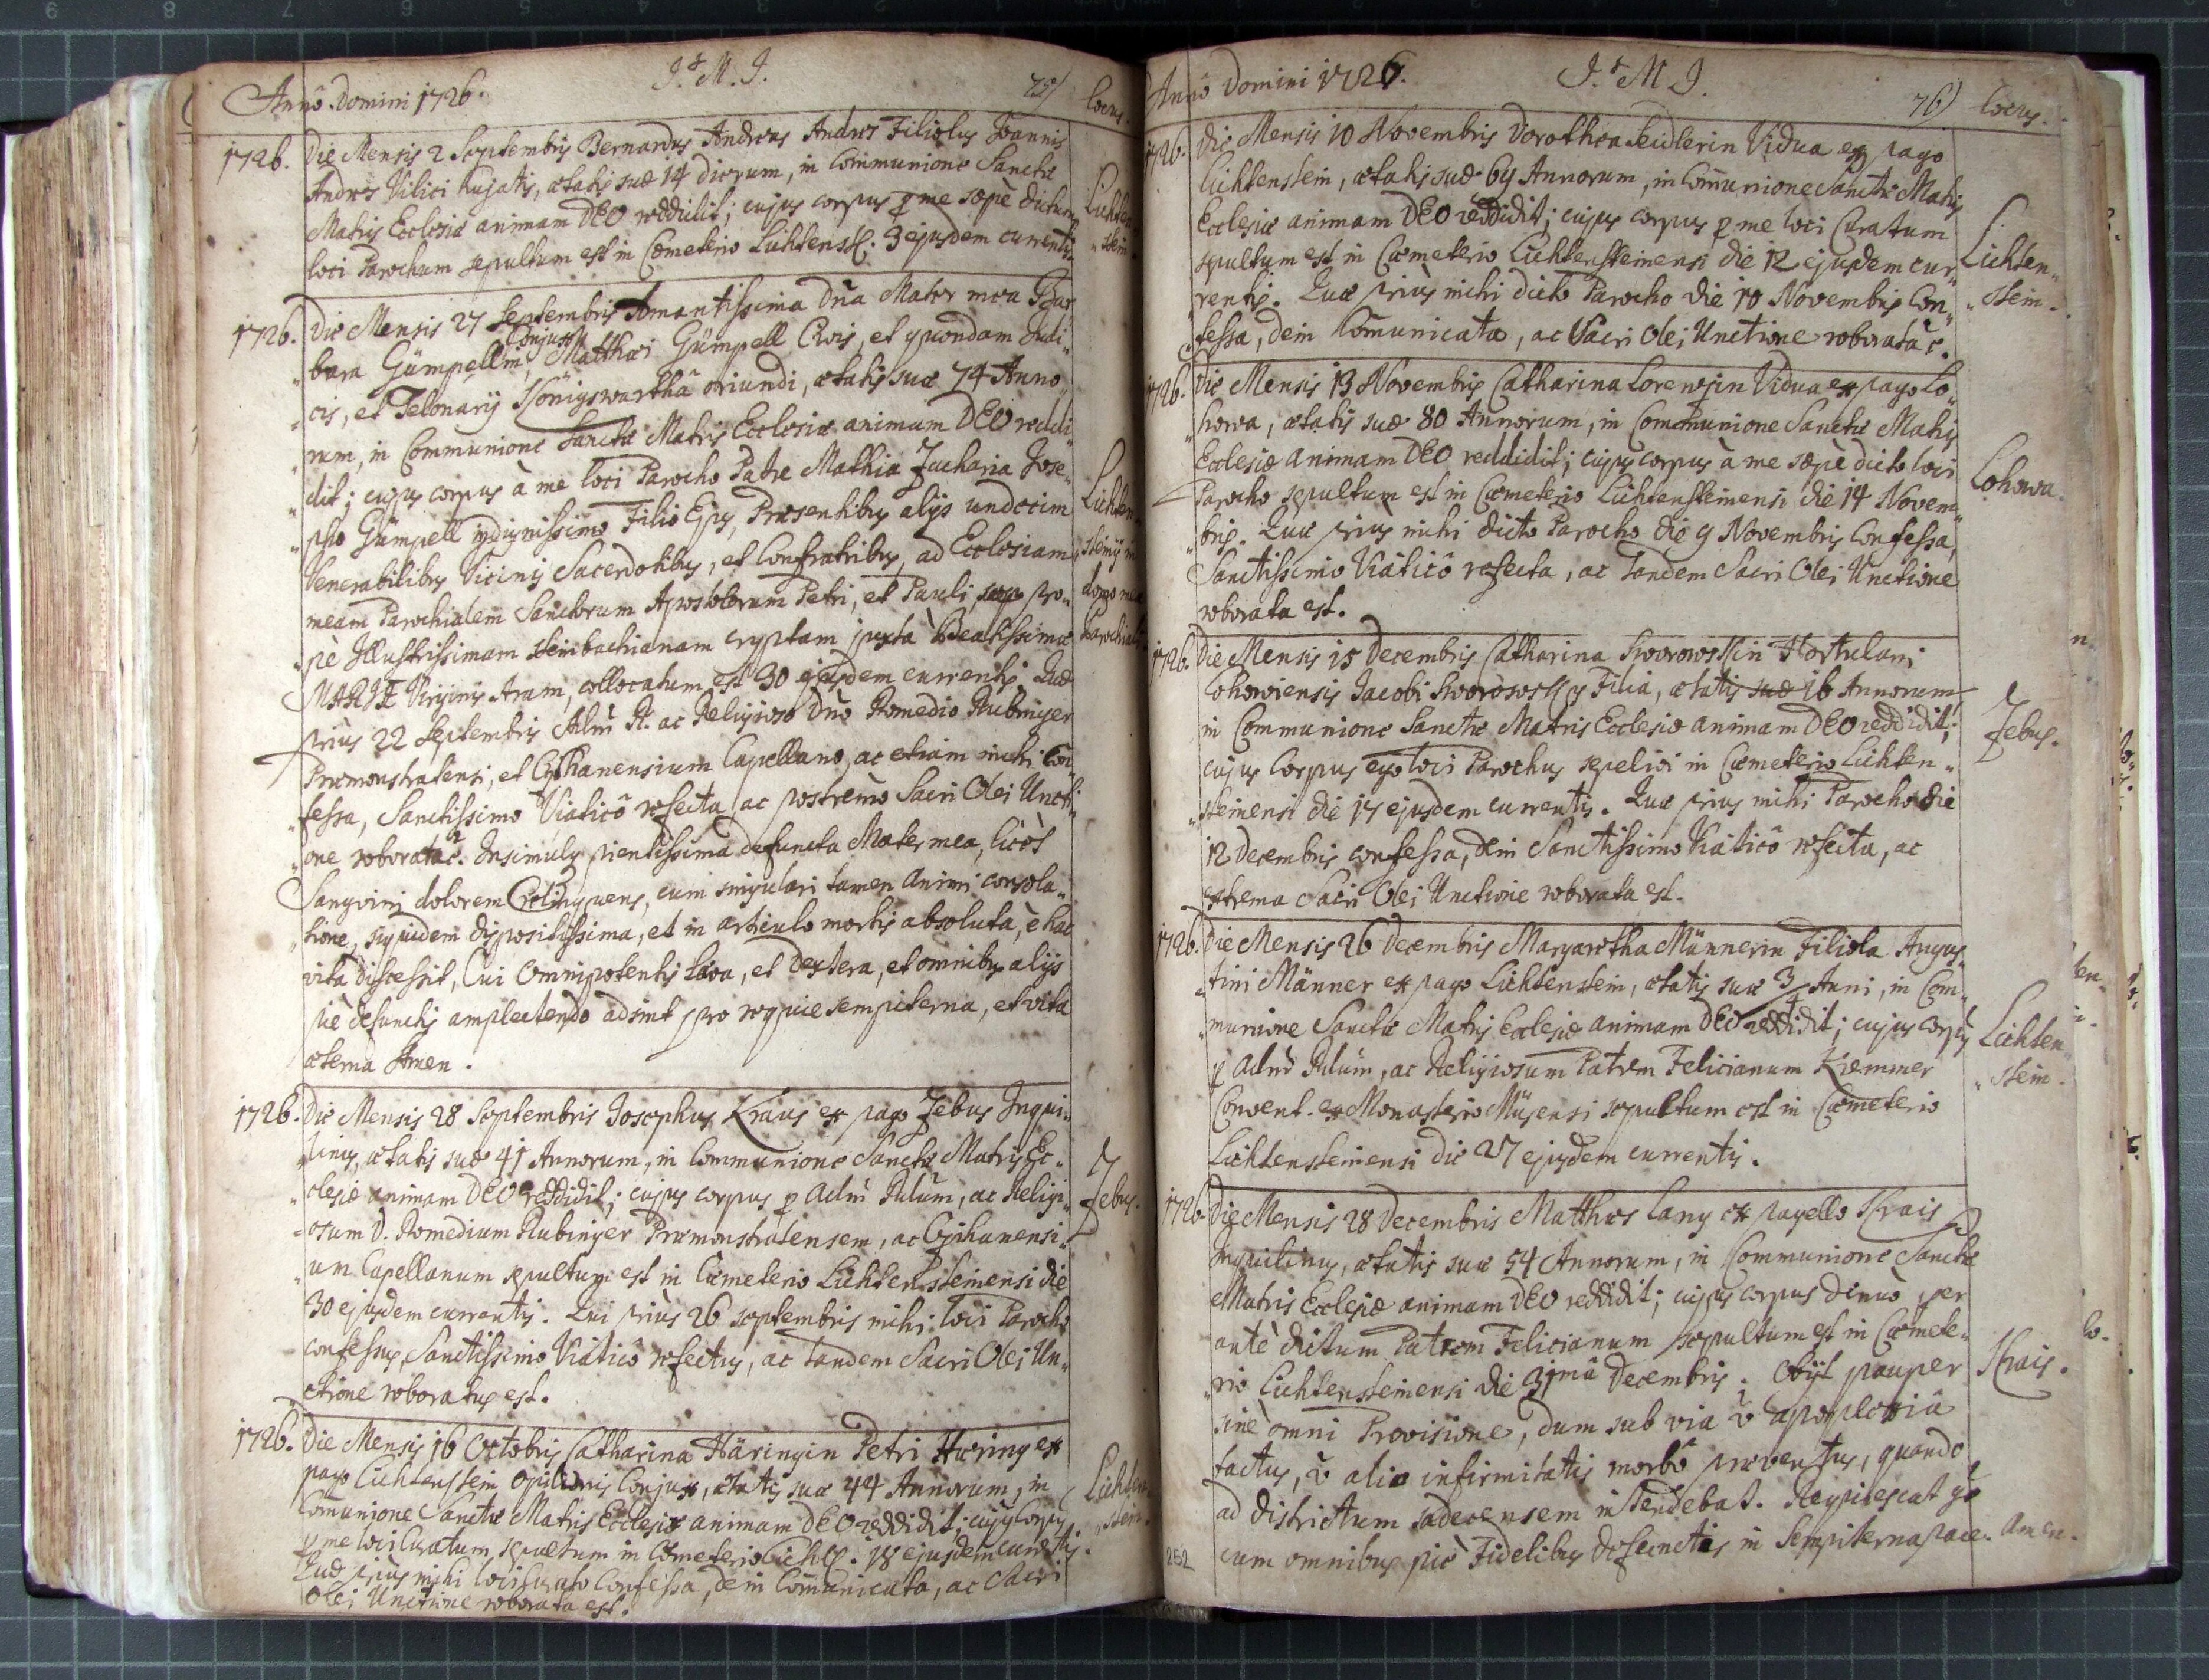 Annô Domini 1726. J. M. J. 75) locus.
1726. Die Mensis 2 Septembris Bernardus Andreas Andres Filiolus Joannis
Andres Vilici hujatis, ætatis suæ 14 dierum, in Communione Sanctæ
Matris Ecclesiæ animam DEO reddidit; cujus corpus p me sæpè dictum
loci Parochum sepultum est in Cœmeterio Lichtenst. 3 ejusdem currentis.
Lichten„
„stein.
1726. Die Mensis 27 Septembris Amantissima Dña Mater mea Bar„
„bara Gümpellin, Conjux Matthæi Gümpell Civis, et quondam Judi„
„cis, et Telonarij Königswarthâ oriundi, ætatis suæ 74 Anno„
„rum, in Communione Sanctæ Matris Ecclesiæ animam DEO reddi„
„dit; cujus corpus à me loci Parocho Patre Mathia Zacharia Jose„
„pho Gümpell indignissimo Filio Ejus, Præsentibus alijs undecim
Venerabilibus Vicinis Sacerdotibus, et Confratribus, ad Ecclesiam
meam Parochialem Sanctorum Apostolorum Petri, et Pauli, pro„
„pè Illustrissimam Steinbachianam cryptam juxta Beatissimæ
MARIÆ Virginis Aram, collocatum est 30 ejusdem currentis. Quæ
prius 22 Septembris Adm̃ R. ac Religioso Dño Romedio Rubinger
Præmonstratensi, et Capellano, ac etiam mihi Con„
„fessa, Sanctissimo Viaticô refecta, ac postremò Sacri Olei Uncti„
„one roborata ẽ. Insimulq pientissima defuncta Mater mea, licèt
Sangvini dolorem relinquens, cum singulari tamen animi consola„
„tione, siquidem dispositissima, et in articulo mortis absoluta, è hac
vita discessit, Cui Omnipotentis læva, et Dextera, et omnibus alijs
piè defunctis amplectendo adsint pro requie sempiterna, et vita
æterna Amen.
Lichten„
„steinij in
domo mea
Parochiali.
1726. Die Mensis 28 Septembris Josephus Kraus ex pago Zebus Inqui„
„linus, ætatis suæ 41 Annorum, in Communione Sanctæ Matris Ec„
„clesiæ animam DEO reddidit; cujus corpus p Adm̃ Rdum, ac Religi„
„osum D. Romedium Rubinger Præmonstratensem, ac
Capellanum sepultum est in Cœmeterio Lichtensteinensi die
30 ejusdem currentis. Qui prius 26 Septembris mihi loci Parocho
confessus, Sanctissimo Viaticô refectus, ac tandem Sacri Olei Un„
ctione roboratus est.
Zebus.
1726. Die Mensis 16 Octobris Catharina Häringin Petri Häring ex
pago Lichtenstein Opilionis Conjux, ætatis suæ 44 Annorum, in
Com̃unione Sanctæ Matris Ecclesiæ animam DEO reddidit; cujus Corpus
p me loci Curatum sepultum in Cœmeterio Lichst. 18 ejusdem currentis.
Quæ prius mihi loci Curato Confessa, dein Com̃unicata, ac Sacri
Olei Unctione roborata est.
Lichten„
„stein.
Annô Domini 1726. J. M. J. 76) locus.
1726. Die Mensis 10 Novembris Dorothea Seidlerin Vidua ex pago
Lichtenstein, ætatis suæ 64 Annorum, in Com̃unione Sanctæ Matris
Ecclesiæ animam DEO reddidit; cujus corpus p me loci Curatum
sepultum est in Cœmeterio Lichtensteinensi die 12 ejusdem cur„
„rentis. Quæ prius mihi dicto Parocho die 10 Novembris Con„
„fessa, dein Com̃unicata, ac Sacri Olei Unctione roborata ẽ.
Lichten„
„stein.
1726. Die Mensis 13 Novembris Catharina Lorenzin Vidua ex pago Lo„
„howa, ætatis suæ 80 Annorum, in Communione Sanctæ Matris
Ecclesiæ animam DEO reddidit; cujus corpus à me sæpè dicto loci
Parocho sepultum est in Cœmeterio Lichtensteinensi die 14 Novem„
„bris. Quæ prius mihi dicto Parocho die 9 Novembris Confessa,
Sanctissimo Viaticô refecta, ac tandem Sacri Olei Unctione
roborata est.
Lohowa.
1726. Die Mensis 15 Decembris Catharina Sworowskin Hortulani
Lohowiensis Jacobi Sworowsky Filia, ætatis suæ 16 Annorum,
in Communione Sanctæ Matris Ecclesiæ animam DEO reddidit;
cujus Corpus ego loci Parochus sepelivi in Cœmeterio Lichten„
„steinensi die 17 ejusdem currentis. Quæ prius mihi Parocho die
12 Decembris confessa, dein Sanctissimo Viaticô refecta, ac
extrema Sacri Olei Unctione roborata est.
Zebus.
1726. Die Mensis 26 Decembris Margaretha Männerin Filiola Augus„
„tini Männer ex pago Lichtenstein, ætatis suæ 3/4 Anni, in Com„
„munione Sanctæ Matris Ecclesiæ animam DEO reddidit; cujus corpus
p Adm̃ Rdum, ac Religiosum Patrem Felicianum Kremmer
Convent. ex Monasterio Misensi sepultum est in Cœmeterio
Lichtensteinensi die 27 ejusdem currentis.
Lichten„
„stein.
1726. Die Mensis 28 Decembris Matthæs Lang ex pagello Krais
Inquilinus, ætatis suæ 54 Annorum, in Communione Sanctæ
Matris Ecclesiæ animam DEO reddidit; cujus corpus denuò per
antè dictum Patrem Felicianum sepultum est in Cœmete„
„rio Lichtensteinensi die 31mâ Decembris. Obijt pauper
sinè omni Provisione, dum sub via apoplexiâ
tactus, alio infirmitatis morbô præventus, quando
ad districtum intendebat. Requiescat
cum omnibus piè Fidelibus Defunctis in Sempiterna pace. Amen.
Krais.
252